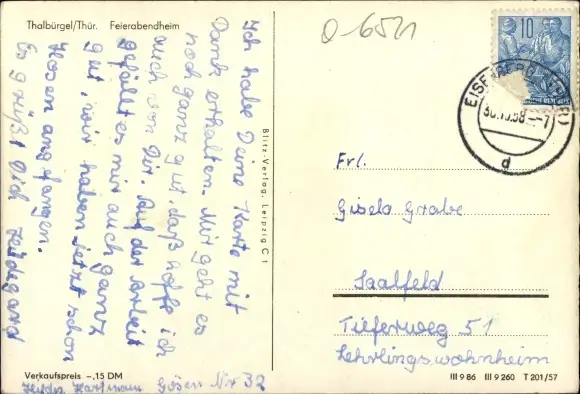 Thalbürgel/Thür. Feierabendheim
Ich habe Deine Karte mit
Dank erhalten. Mir geht es
noch ganz gut, daß hoffe ich
auch von Dir. Auf der Arbeit
gefällt es mir auch ganz
gut, wir haben jetzt schon
Hosen angefangen.
Es grüßt Dich Heidegard
Verkaufspreis -,15 DM
Hartmann Gösen Nr 32
Blitz-Verlag, Leipzig C 1
0-6521
10
EISENBERG (THÜR)
30.10.58
d
Frl.
Gisela Grabe
Saalfeld
Tieferweg 51
Lehrlingswohnheim
III 9 86 III 9 260 T 201/57